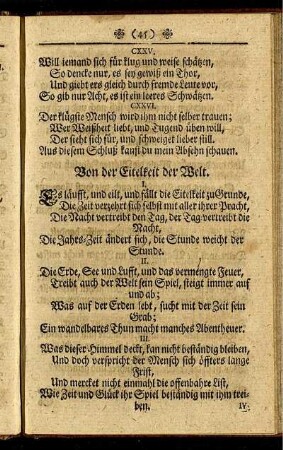 (41)
CXXV.
Will iemand sich für klug und weise schätzen,
So dencke nur, es sey gewiß ein Thor,
Und giebt ers gleich durch fremde Leute vor,
So gib nur Acht, es ist ein leeres Schwätzen.
CXXVI.
Der klügste Mensch wird ihm nicht selber trauen;
Wer Weißheit liebt, und Tugend üben will,
Der sieht sich für, und schweiget lieber still.
Aus diesem Schluß kanst du mein Absehn schauen.
Von der Eitelkeit der Welt.
I.
Es läufft, und eilt, und fällt die Eitelkeit zu Grunde,
Die Zeit verzehrt sich selbst mit aller ihrer Pracht,
Die Nacht vertreibt den Tag, der Tag vertreibt die
Nacht,
Die Jahrs-Zeit ändert sich, die Stunde weicht der
Stunde.
II.
Die Erde, See und Lufft, und das vermengte Feuer,
Treibt auch der Welt sein Spiel, steigt immer auf
und ab;
Was auf der Erden lebt, sucht mit der Zeit sein
Grab;
Ein wandelbares Thun macht manches Abentheuer.
III.
Was dieser Himmel deckt, kan nicht beständig bleiben,
Und doch verspricht der Mensch sich öffters lange
Frist,
Und mercket nicht einmahl die offenbahre List,
Wie Zeit und Glück ihr Spiel beständig mit ihm trei-
ben.
IV.